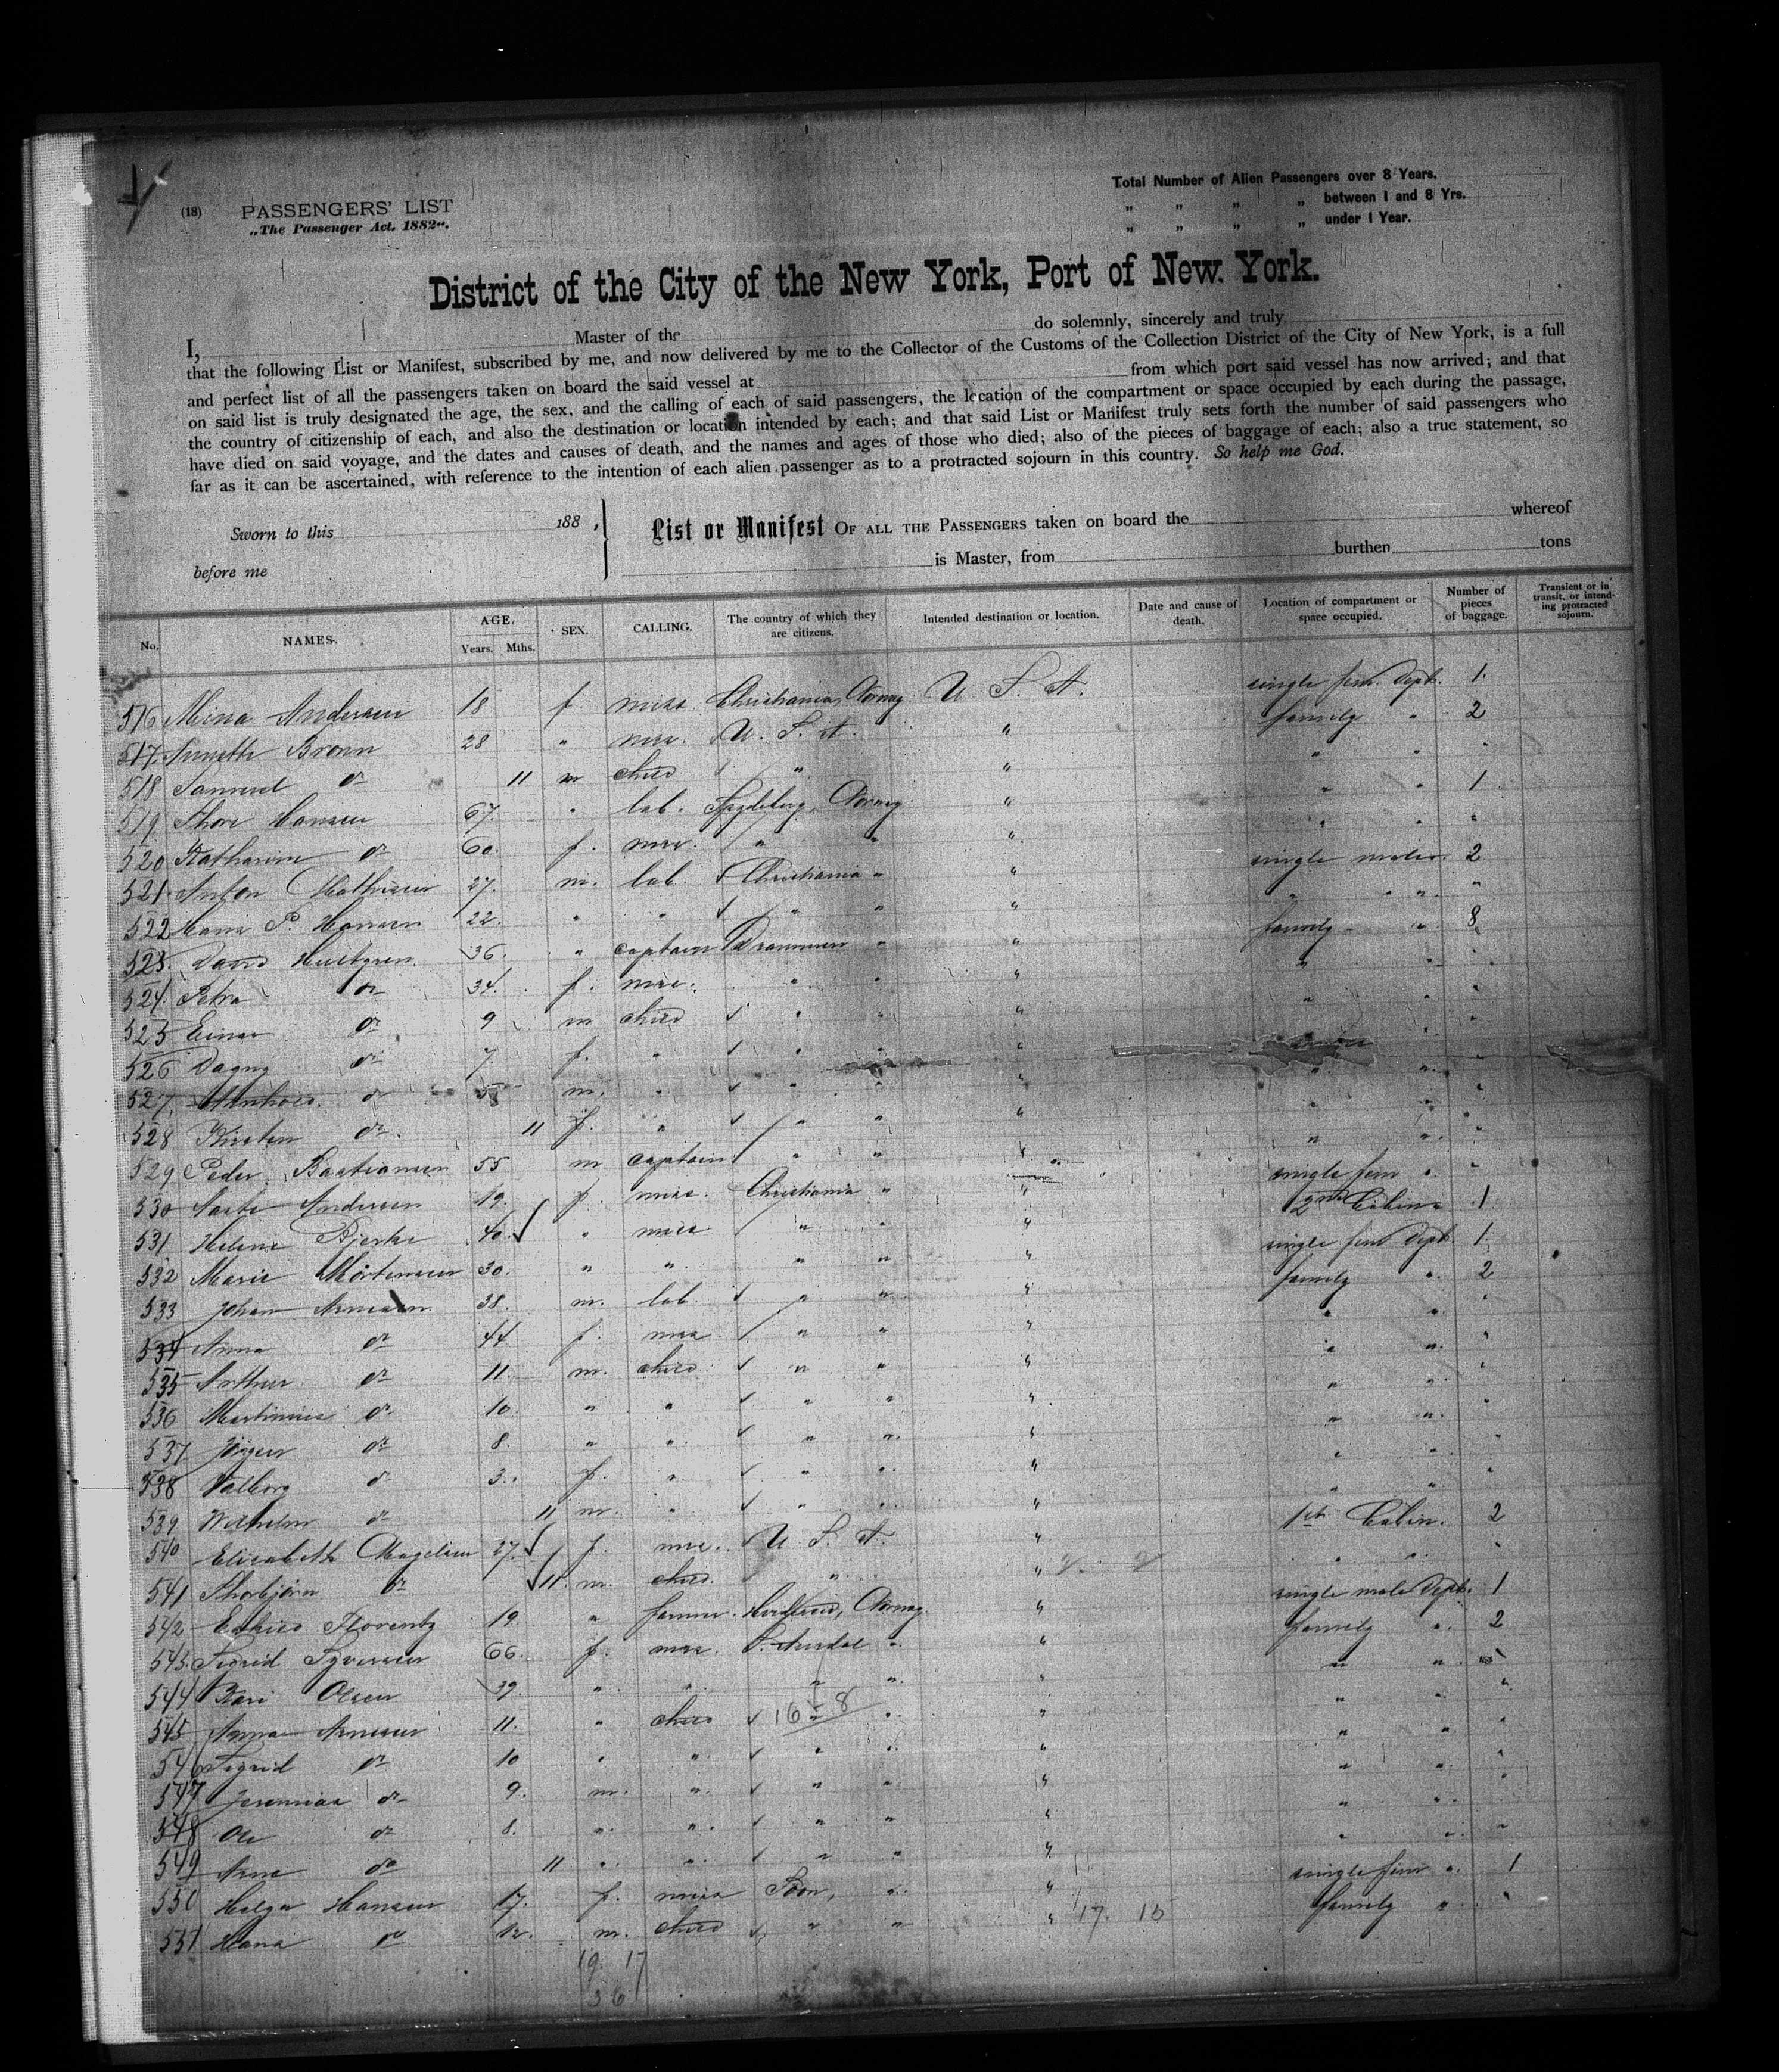 (18) PASSENGERS' LIST
„The Passenger Act, 1882“.
Total Number of Alien Passengers over 8 Years.
„ „ „ „ between 1 and 8 Yrs.
„ „ „ „ under 1 Year.
District of the City of the New York, Port of New. York.
I, Master of the do solemnly, sincerely and truly
that the following List or Manifest, subscribed by me, and now delivered by me to the Collector of the Customs of the Collection District of the City of New York, is a full
and perfect list of all the passengers taken on board the said vessel at from which port said vessel has now arrived; and that
on said list is truly designated the age, the sex, and the calling of each of said passengers, the location of the compartment or space occupied by each during the passage,
the country of citizenship of each, and also the destination or location intended by each; and that said List or Manifest truly sets forth the number of said passengers who
have died on said voyage, and the dates and causes of death, and the names and ages of those who died; also of the pieces of baggage of each; also a true statement, so
far as it can be ascertained, with reference to the intention of each alien passenger as to a protracted sojourn in this country. So help me God.
Sworn to this 188 ,
before me
List or Manifest OF ALL THE PASSENGERS taken on board the whereof
is Master, from burthen tons
No. NAMES. AGE. Years. Mths. SEX. CALLING. The country of which they are citizens. Intended destination or location. Date and cause of death. Location of compartment or space occupied. Number of pieces of baggage. Transient or in transit, or intending protracted sojourn.
516 Mina Andersen 18 f. miss Christiania, Norway U. S. A. single fem. Dept. 1.
517. Annette Brown 28 " mrs. U. S. A. " family " 2
518 Samuel do 11 m child " " " " "
519 Thore Hansen 67. " lab. Norway " " " 1
520 Katharine do 60. f. mrs. " " " " " "
521 Anton Mathisen 27. m. lab. Christiania " " single males 2
522 Hans P. Hansen 22. " " " " " " " " "
523. David Hultgren 36. " captain Drammen " " family " 8
524. Petra do 34. f. mrs. " " " " " "
525 Einar do 9 m child " " " " " "
526 Dagny do 7 f. " " " "
527. do 5 m. " " " " " " "
528 Kirsten do 11 f. " " " " " " "
529 Peder Bastiansen 55 m captain " " " " " "
530 Andersen 19. f. miss. Christiania " " single fem " "
531 Helene Bjerke 40. " miss " " " 2nd Cabin 1
532 Marie Mortensen 30. " " " " " single fem Dept. 1.
533 Johan Arnesen 38. m. lab. " " " family " 2
534 Anna do 44 f. mrs " " " " " "
535 Arthur do 11. m. child " " " " " "
536 Martinius do 10. " " " " " " " "
537 Jörgen do 8. " " " " " " " "
538 Valborg do 3. f. " " " " " " "
539 Wilhelm do 11 m. " " " " " " "
540 Elisabeth Magelsen 27. f. mrs. U. S. A. " 1st Cabin. 2
541 Thorbjörn do 11. m. child. " " " " "
542 Florentz 19 " farmer. Norway. " single male Dept. 1
543. Sigrid Syversen 66. f. mrs. " " family " 2
544 Kari Olsen 39. " " " " " " "
545 Anna Arnesen 11. " child 16 8 " " " " "
546 Sigrid do 10 " " " " " " " "
547 Jeremias do 9. m. " " " " " " "
548 Ole do 8. " " " " " " " "
549 Arne do 11 " " " " " " " "
550 Helga Hansen 17. f. miss Soon, " " single fem " 1
551 Hans do 12. m. child " " " 17. 15 family " "
19. 17
36